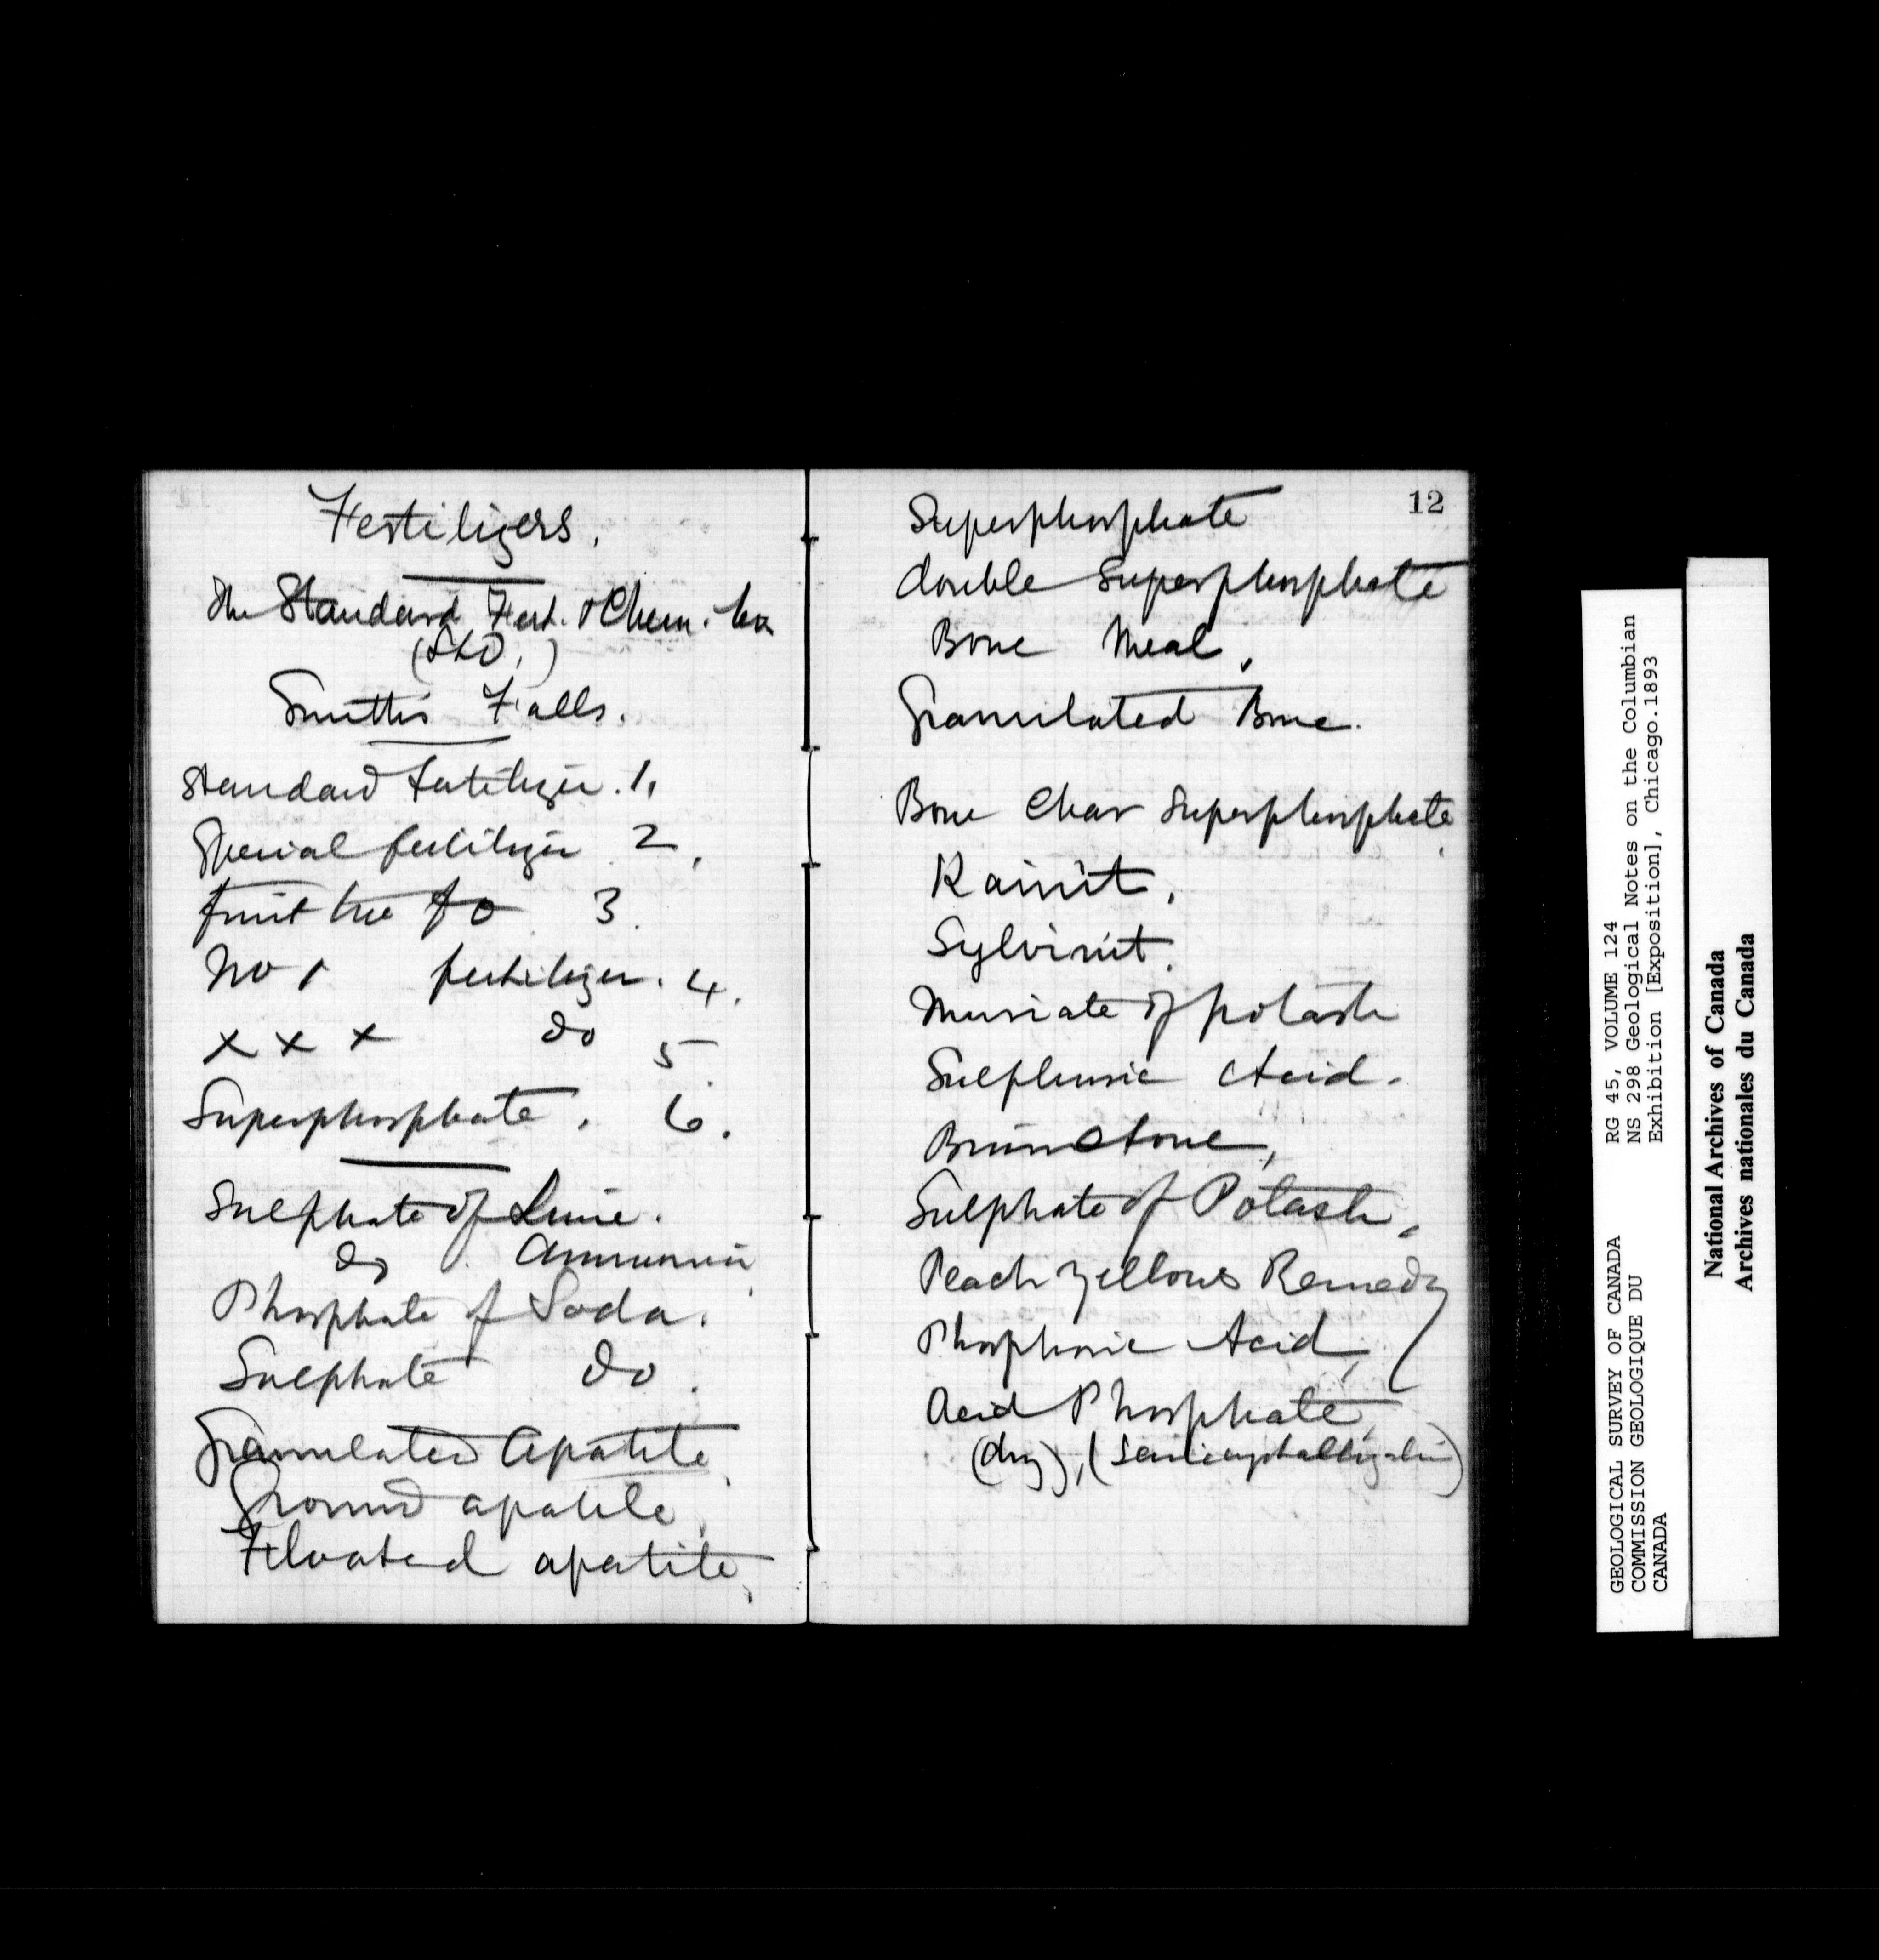 Fertilizers.
The Standard Fert. & Chem. Co.
(Ltd.)
Smiths Falls.
Standard fertilizer. 1.
Special fertilizer 2.
fruit tree do 3.
No 1 fertilizer. 4.
x x x do 5.
Superphosphate. 6.
Sulphate of Lime.
do. Ammonia
Phosphate of Soda.
Sulphate do.
Granulated Apatite
Ground apatite
Floated apatite,
12
Superphosphate
double Superphosphate
Bone Meal.
Granulated Bone.
Bone Char Superphosphate.
Kainit.
Sylvinit.
Muriate of potash
Sulphuric Acid.
Brimstone,
Sulphate of Potash.
Peach Yellows Remedy
Phosphoric Acid,
Acid Phosphate,
(dry), (
GEOLOGICAL SURVEY OF CANADA
COMMISSION GEOLOGIQUE DU
CANADA
RG 45, VOLUME 124
NS 298 Geological Notes on the Columbian
Exhibition [Exposition], Chicago.1893
National Archives of Canada
Archives nationales du Canada